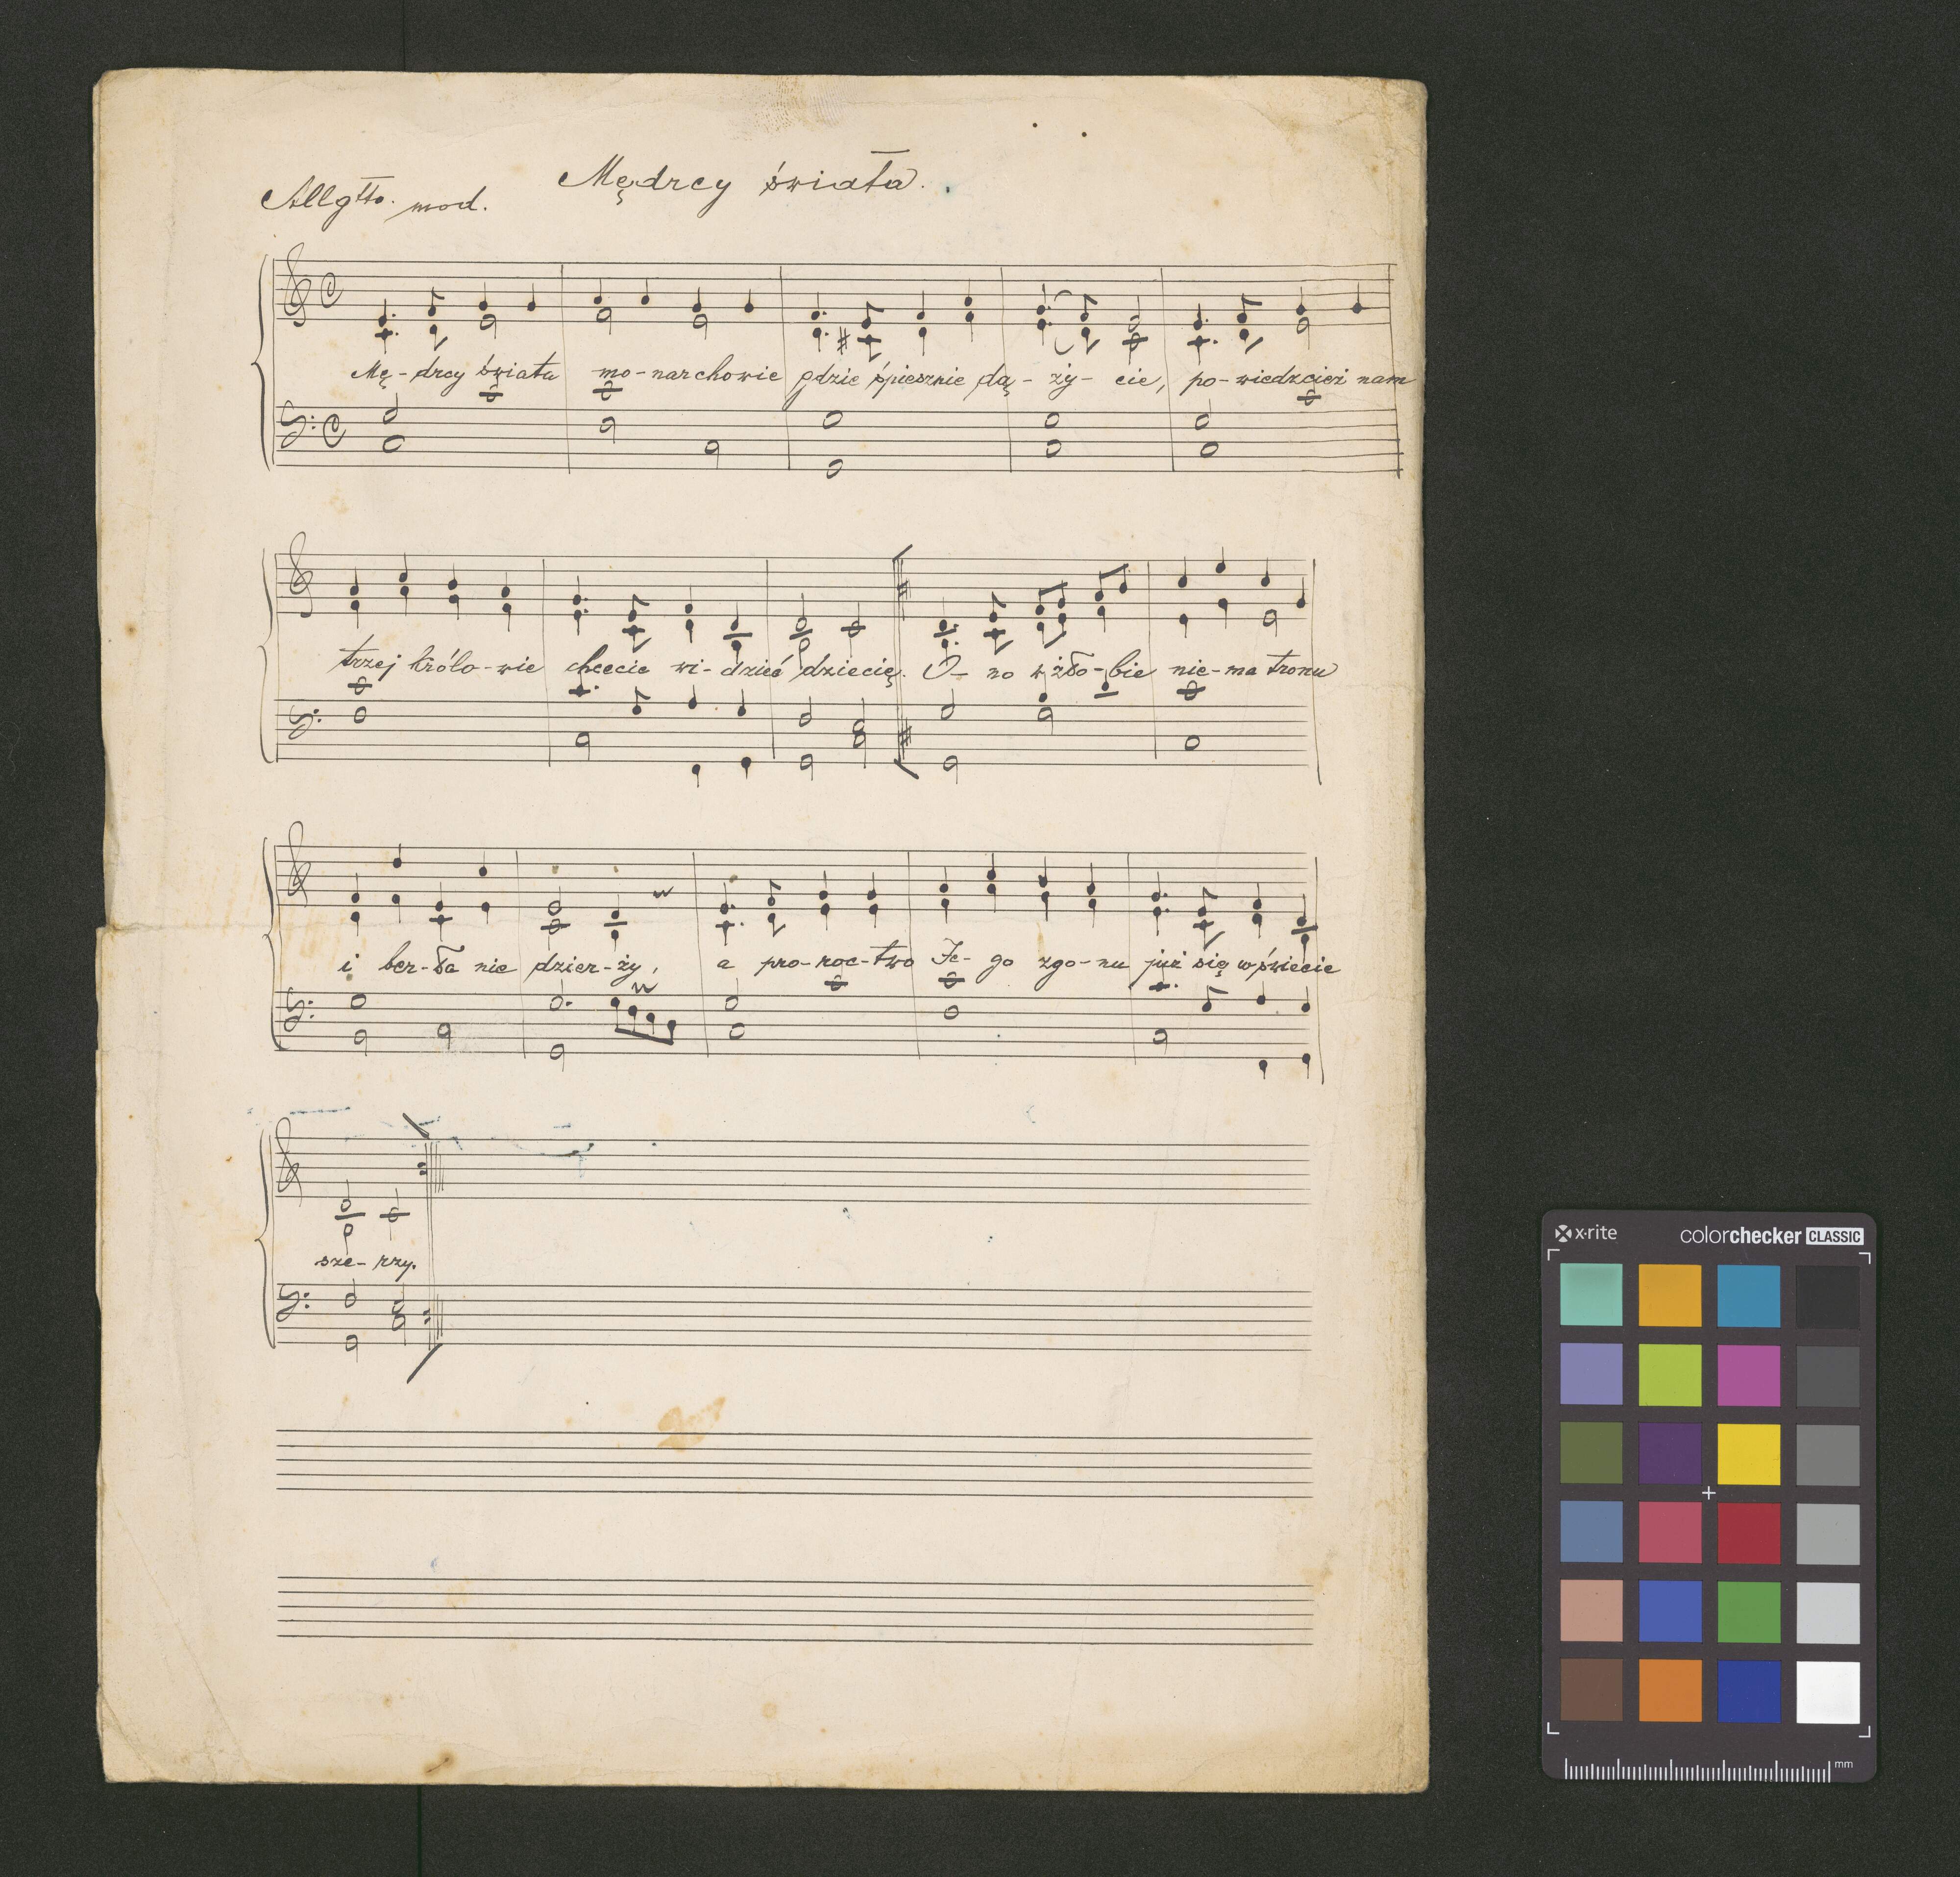 Mędrcy świata.
Allgtto. mod.
Mę-drcy świata mo-narchowie gdzie śpiesznie dą-ży-cie, po-wiedzcież nam
trzej królo-wie chcecie wi-dzieć dziecię. O-no w żło-bie nie-ma tronu
i ber-ła nie dzier-ży, a pro-roc-two Je-go zgo-nu już się w świecie
sze-rzy.
x·rite colorchecker CLASSIC
mm